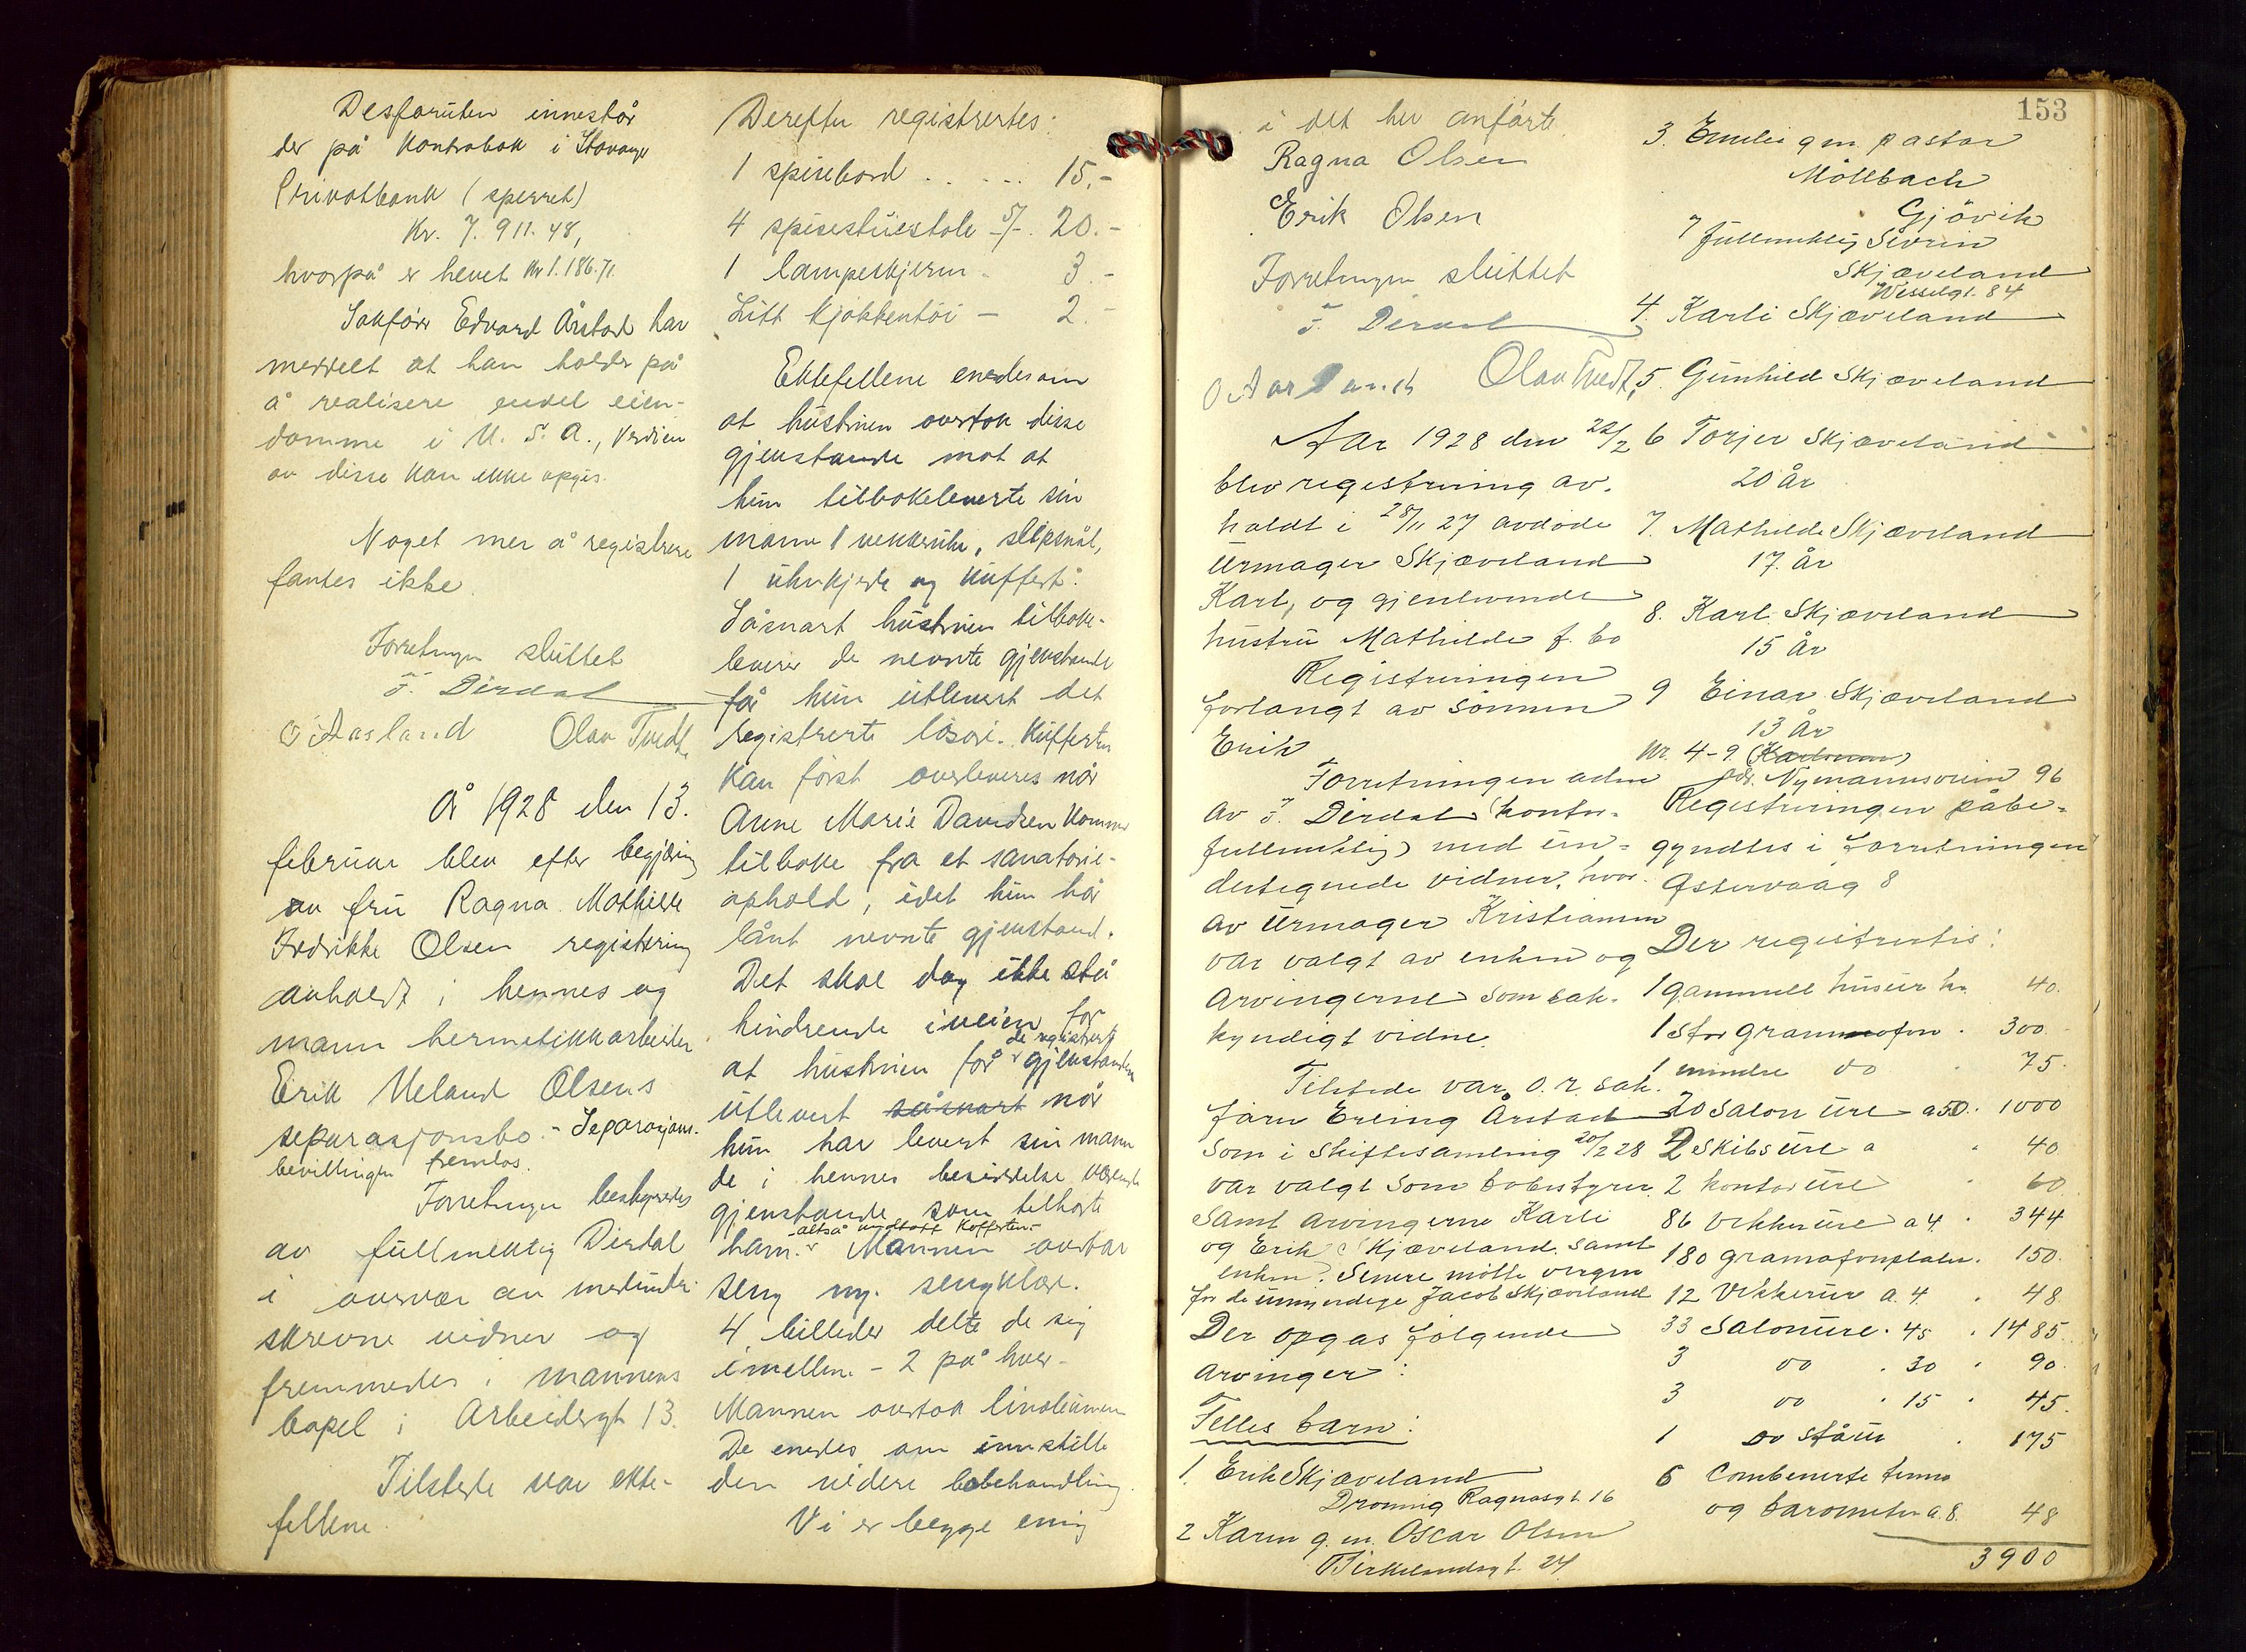 Desforuten innestår
der på Kontrabok i Stavanger
Privatbank (sperret)
Kr. 7.911.48,
hvorpå er hevet Kr 1.186.71.
Sakfører Edvard Årstad har
meddelt at han holder på
å realisere endel eien-
domme i U.S.A., Verdien
av disse kan ikke opgis.
Noget mer å registrere
fantes ikke.
Forretningen sluttet
F. Dirdal
O Aasland Olav Tvedt
År 1928 den 13.
februar blev efter begjæring
av fru Ragna Mathilde
Fredrikke Olsen registrering
avholdt i hennes og
mann hermetikkarbeider
Erik Ueland Olsens
separasjonsbo. - Separasjons-
bevillingen fremlås.
Forretningen bestyredes
av fullmektig Dirdal
i overvær av medunder-
skrevne vidner og
fremmedes i mannens
bopel i Arbeidergt 13.
Tilstede var ekte-
fellene.
Derefter registrertes:
1 spisebord . . . . . 15.-
4 spisestuestole 5/- . 20.-
1 lampeskjerm - 3.-
Litt kjøkkentøi - 2.-
Ektefellene enedes om
at hustruen overtok disse
gjenstande mot at
hun tilbakeleverte sin
mann 1 vekkeruhr, slipsnål,
1 uhrkjede og kuffert.
Såsnart hustruen tilbake-
leverer de nevnte gjenstande
får hun utlevert det
registrerte løsøre. Kufferten
kan først overleveres når
Anne Marie Davidsen kommer
tilbake fra et sanatorie-
ophold, idet hun har
lånt nevnte gjenstand.
Det skal dog ikke stå
hindrende i veien for
at hustruen får de registrerte gjenstandene
utlevert såsnart når
hun har levert sin mann
de i hennes besiddelse værende
gjenstande som tilhørte
ham. - altså undtatt Kofferten - Mannen overtar
seng m. sengklær.
4 billeder delte de sig
imellem - 2 på hver -
Mannen overtok linoleumen
De enedes om innstille
den videre bobehandling.
Vi er begge enig
153
i det her anførte.
Ragna Olsen
Erik Olsen
Forretningen sluttet
F. Dirdal
O Aasland Olav Tvedt,
Aar 1928 den 22/2
blev registrering av-
holdt i 28/11 27 avdøde
Urmager Skjæveland
Karl, og gjenlevende
hustru Mathilde f. bo
Registreringen
forlangt av sønnen
Erik
Forretningen adm
av F. Dirdal (kontor-
fullmektig) med un-
dertegnede vidner, hvor-
av Urmager Kristiansen
var valgt av enken og
Arvingerne som sak-
kyndigt vidne.
Tilstede var O. r. sak-
fører Erling Årstad
som i Skiftesamling 20/2 28
var valgt som bobestyrer
samt arvingerne Karli
og Erik Skjæveland samt
enken. Senere møtte vergen
for de umyndige Jacob Skjæveland
Der opgas følgende
arvinger:
Felles barn:
1. Erik Skjæveland
Dronnig Ragnasgt 16
2 Karen g. m. Oscar Olsen
Birkelandsgt. 24
3. Emilie gm. pastor
Möllbach
Gjövik
7 fullmektig Sevrin
Skjæveland
Wesselgt. 84
4. Karli Skjæveland
5. Gunhild Skjæveland
6 Torjer Skjæveland
20 år
7. Mathilde Skjæveland
17. år
8. Karl. Skjæveland
15 år
9 Einar Skjæveland
13 år
Nr. 4-9
adr. Nymannsveien 96
Registreringen påbe-
gyndtes i forretningen
Østervaag 8
Der registrertes:
1 gammell husur kr. 40.
1 stor grammofon . 300.
1 mindre do . 75.
20 Salon ure a 50. . 1000
2 Skibsure a . 40
2 kontorure . 60
86 Vekkeure a 4 . 344
180 gramofonplater . 150.
12 Vekkerur a. 4. . 48
33 Salonure . 45 . 1485.
3 do . 30 . 90.
3 do . 15 . 45.
1 do Ståur . 175
6 Combenerte termo
og barometer a. 8. 48
3900